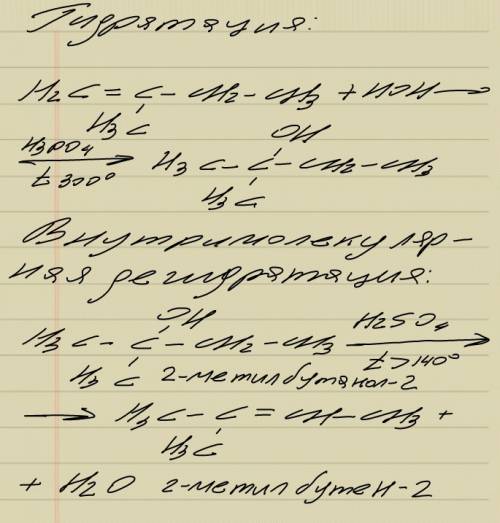 Гидратация:
H₂C = C – CH₂ – CH₃ + HOH ⟶
H₃C
OH
H₃PO₄ ⟶ H₃C – C – CH₂ – CH₃
t 300°
H₃C
Внутримолекуляр-
ная дегидратация:
OH
H₃C – C – CH₂ – CH₃ H₂SO₄ ⟶
t>140°
H₃C 2-метилбутанол-2
⟶ H₃C – C = CH – CH₃ +
H₃C
+ H₂O 2-метилбутен-2